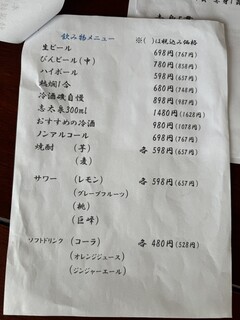 飲み物メニュー ※( )は税込み価格
生ビール 698円(767円)
びんビール(中) 780円(858円)
ハイボール 598円(657円)
熱燗1合 680円(748円)
冷酒磯自慢 898円(987円)
志太泉300ml 1480円(1628円)
おすすめの冷酒 980円(1078円)
ノンアルコール 698円(767円)
焼酎 (芋) 各 598円(657円)
(麦)
サワー (レモン) 各 598円(657円)
(グレープフルーツ)
(桃)
(巨峰)
ソフトドリンク (コーラ) 各 480円(528円)
(オレンジジュース)
(ジンジャーエール)